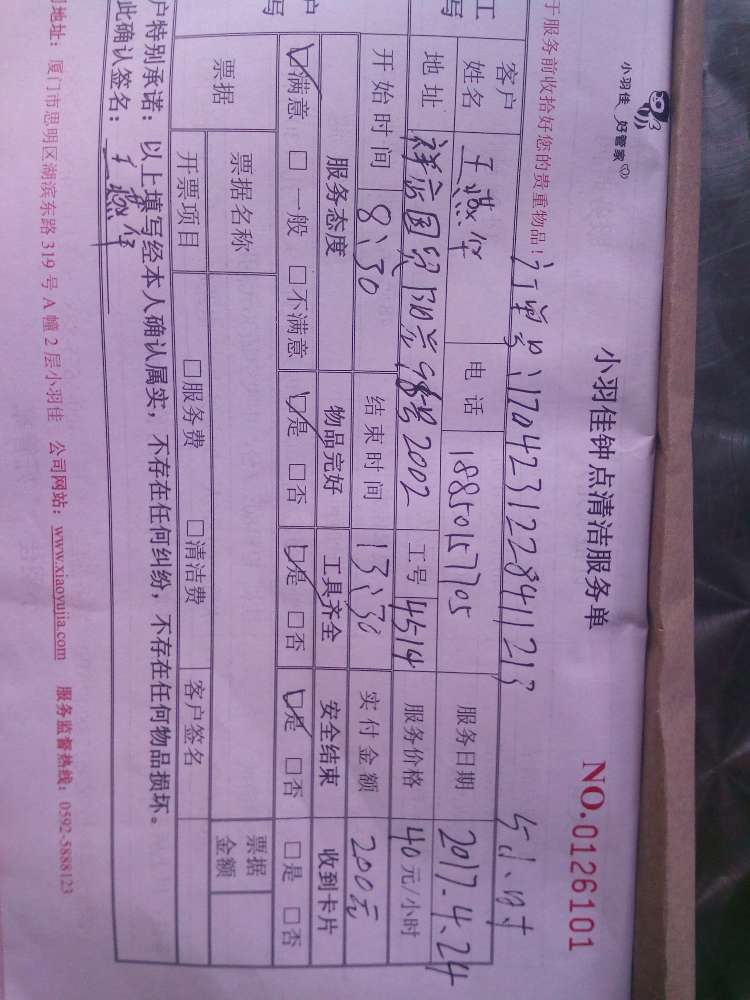 小羽佳 好管家
小羽佳钟点清洁服务单
NO.0126101
于服务前收拾好您的贵重物品!
订单号:1704231228411213
5小时
客户姓名 王 电话 18850157705 服务日期 2017.4.24
地址 祥店国贸阳光98号2002 工号 4514 服务价格 40元/小时
开始时间 8:30 结束时间 13:30 实付金额 200元
服务态度 物品完好 工具齐全 安全结束 收到卡片
☑满意 □一般 □不满意 ☑是 □否 ☑是 □否 ☑是 □否 □是 □否
票据 票据名称 票据金额
开票项目 □服务费 □清洁费 客户签名
户特别承诺:以上填写经本人确认属实,不存在任何纠纷,不存在任何物品损坏。
此确认签名:王
地址:厦门市思明区湖滨东路 319 号 A 幢 2 层小羽佳 公司网站:www.xiaoyujia.com 服务监督热线:0592-5888123